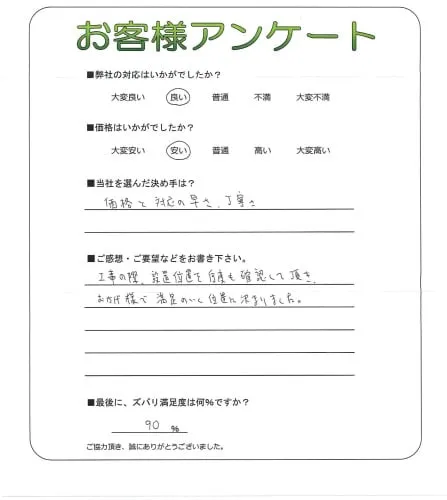 お客様アンケート
■弊社の対応はいかがでしたか？
大変良い 良い 普通 不満 大変不満
■価格はいかがでしたか？
大変安い 安い 普通 高い 大変高い
■当社を選んだ決め手は？
価格と対応の早さ、丁寧さ
■ご感想・ご要望などをお書き下さい。
工事の際、設置位置を何度も確認して頂き、
おかげ様で満足のいく位置に決まりました。
■最後に、ズバリ満足度は何％ですか？
90 ％
ご協力頂き、誠にありがとうございました。